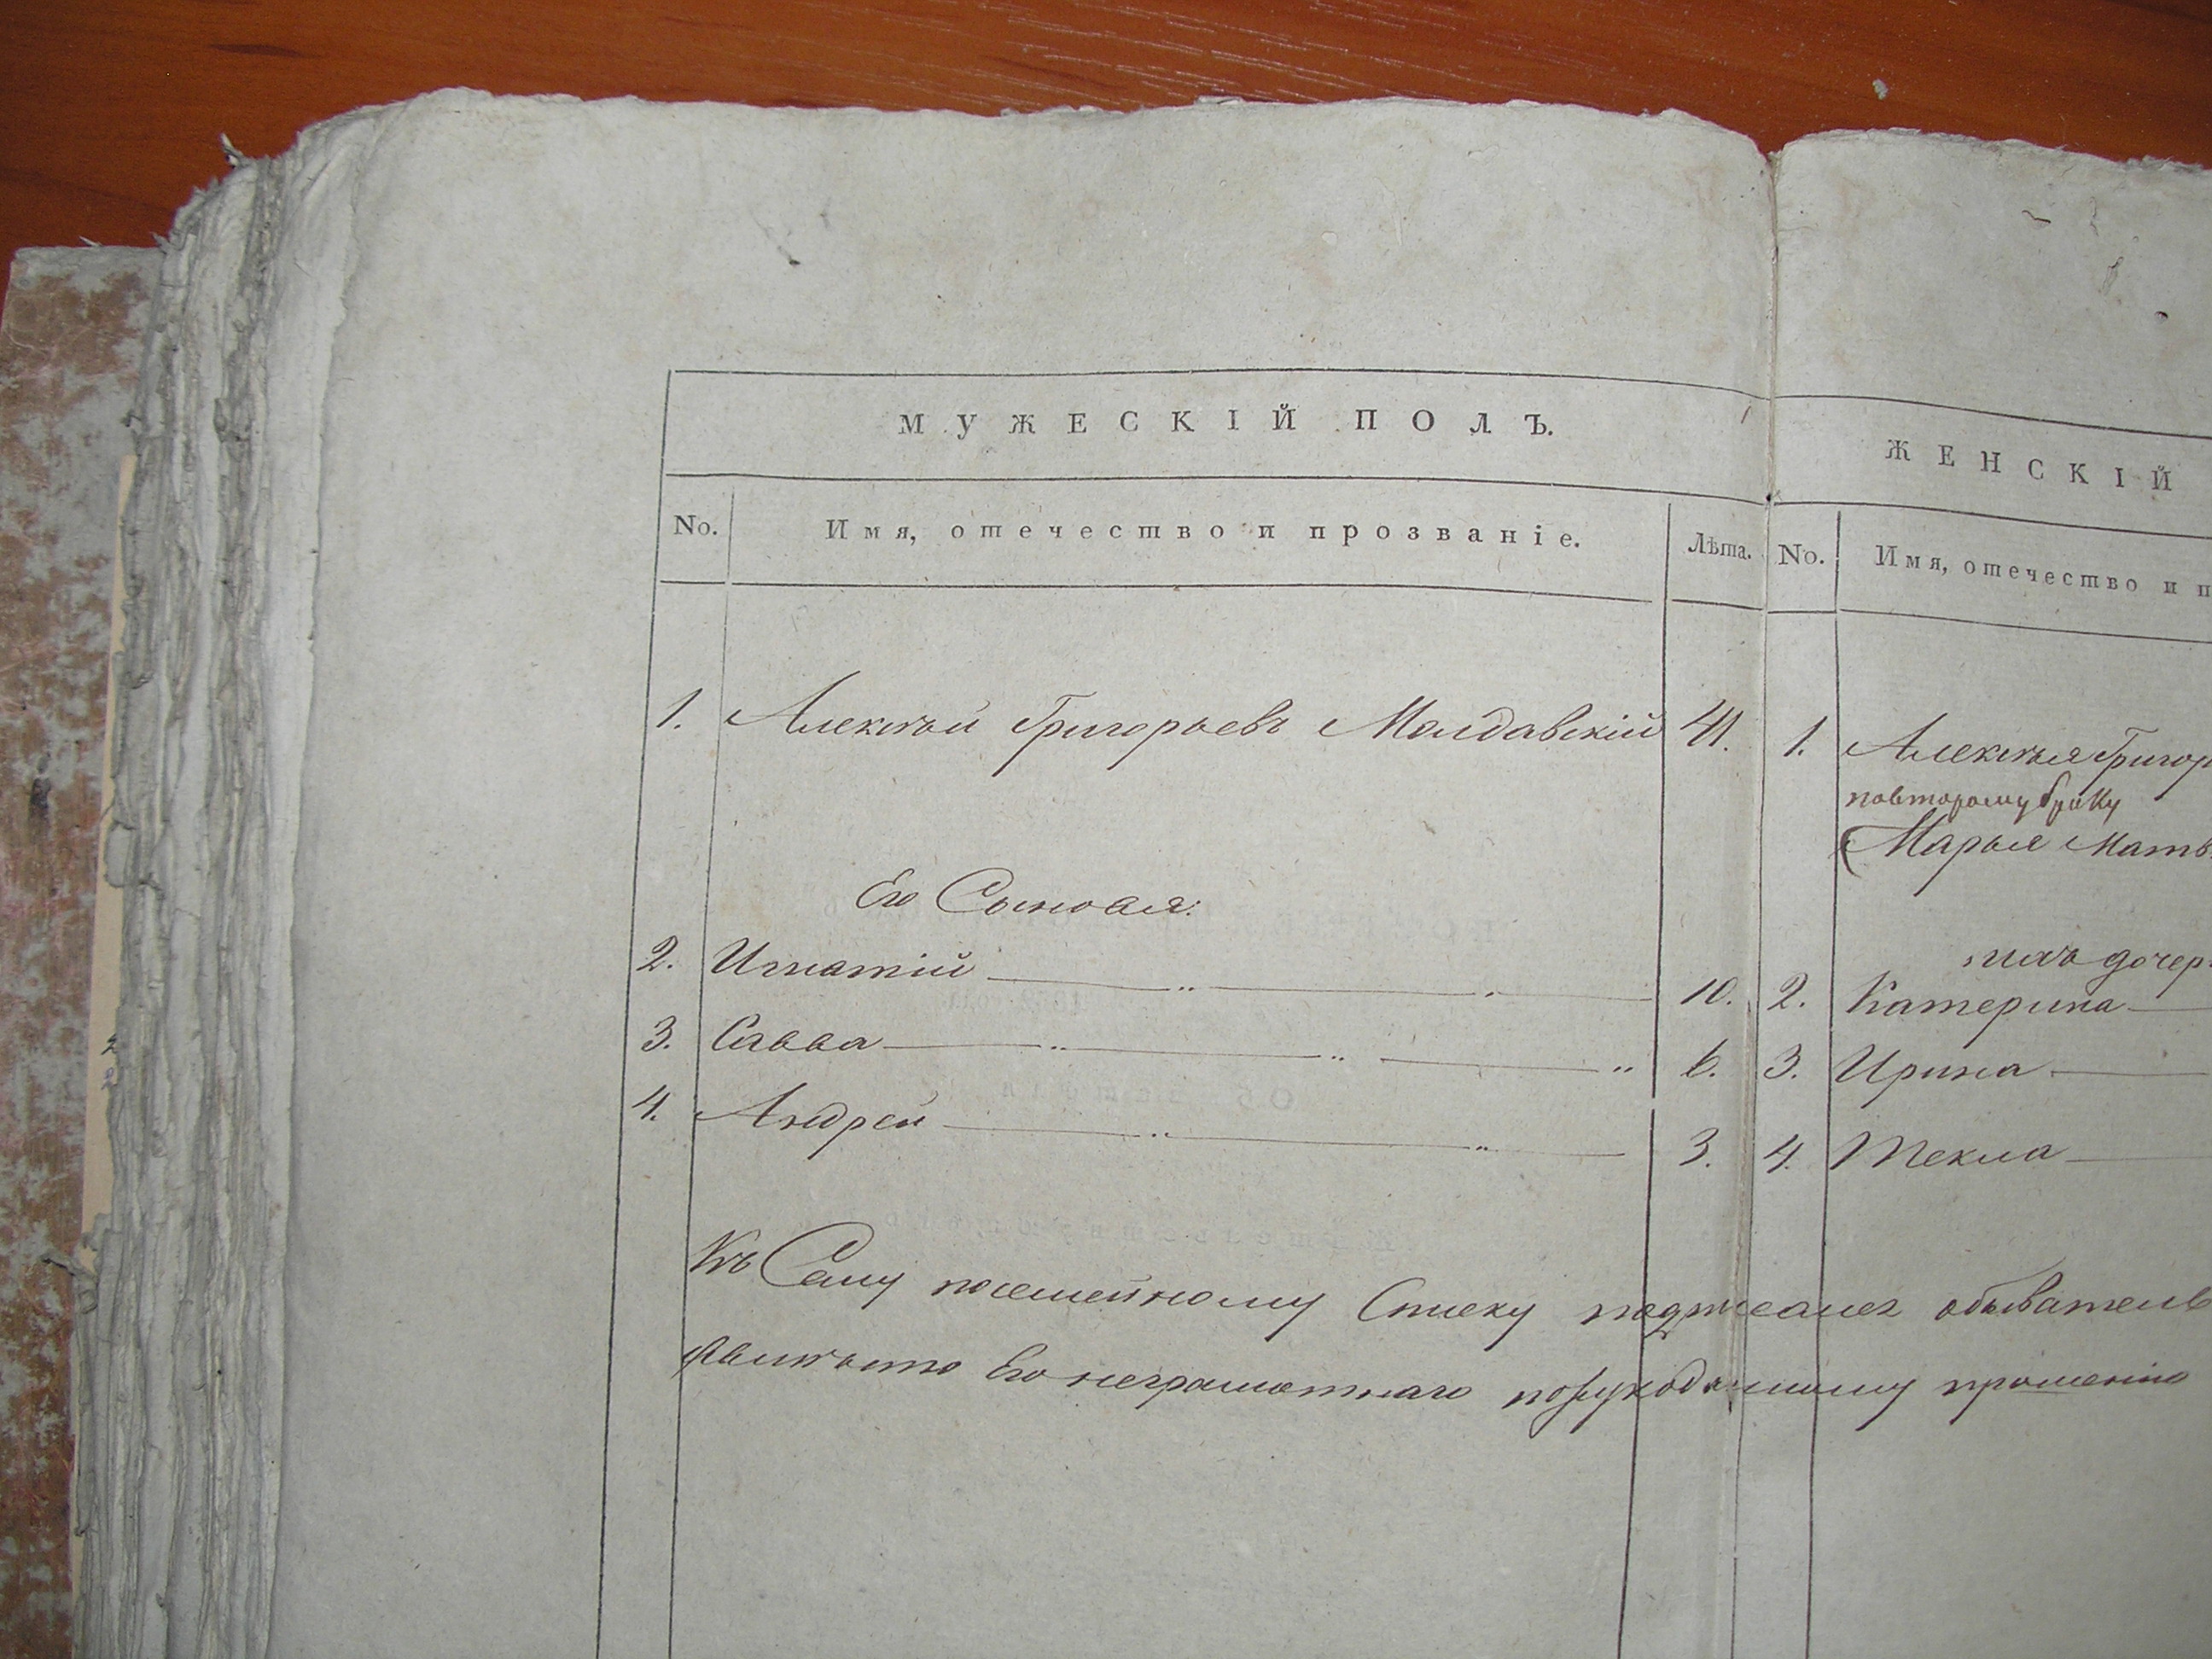 МУЖЕСКІЙ ПОЛЪ.
No. Имя, отечество и прозваніе. Лѣта.
1. Алексѣй Григорьевъ Молдавскій 41.
Его Сыновья:
2. Игнатій — „ — „ — 10.
3. Савва — „ — „ — „ 6.
4. Андрей — „ — „ — 3.
ЖЕНСКІЙ
No. Имя, отечество и п
1. Алексѣя Григор
повторому браку
Марья Матв
ихъ дочер
2. Катерина —
3. Ирина —
4. Текла —
Къ Сему посемейному Списку подписался обыватель
Его неграмотнаго порукоданному прошенію